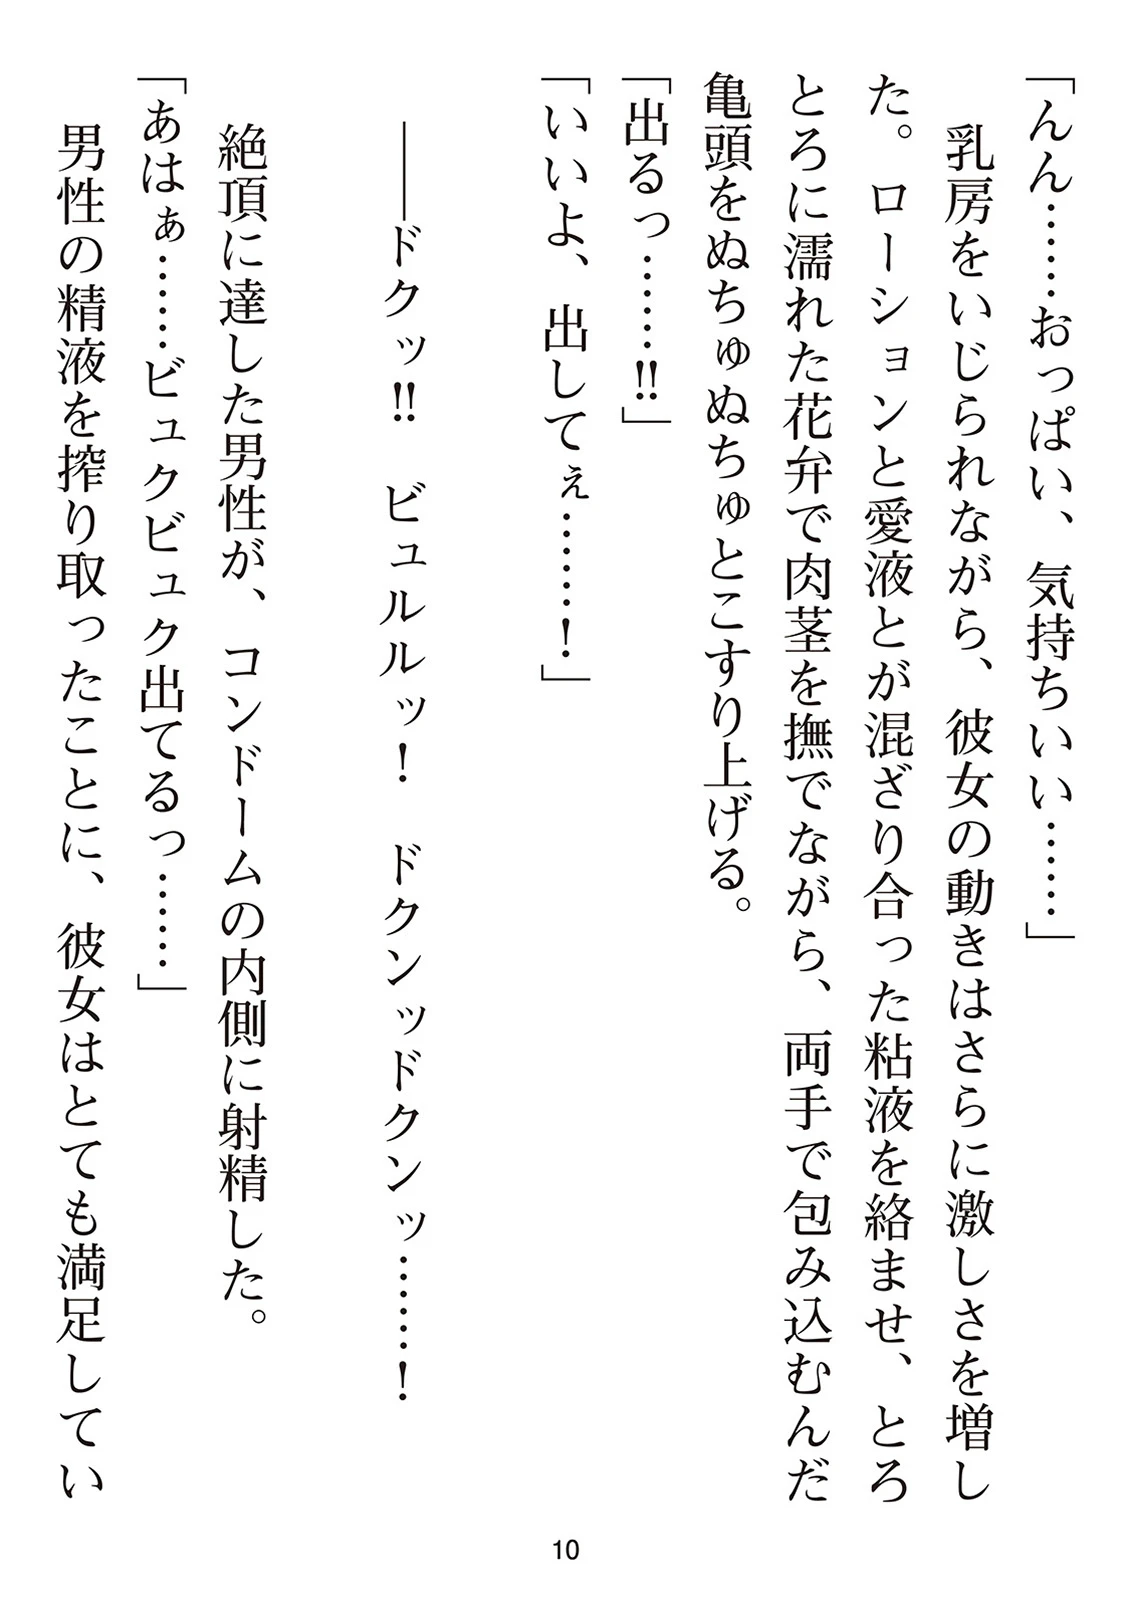 「んん……おっぱい、気持ちいい……」
　乳房をいじられながら、彼女の動きはさらに激しさを増し
た。ローションと愛液とが混ざり合った粘液を絡ませ、とろ
とろに濡れた花弁で肉茎を撫でながら、両手で包み込むんだ
亀頭をぬちゅぬちゅとこすり上げる。
「出るっ……‼」
「いいよ、出してぇ……！」
　――ドクッ‼　ビュルルッ！　ドクンッドクンッ……！
　絶頂に達した男性が、コンドームの内側に射精した。
「あはぁ……ビュクビュク出てるっ……」
　男性の精液を搾り取ったことに、彼女はとても満足してい
10